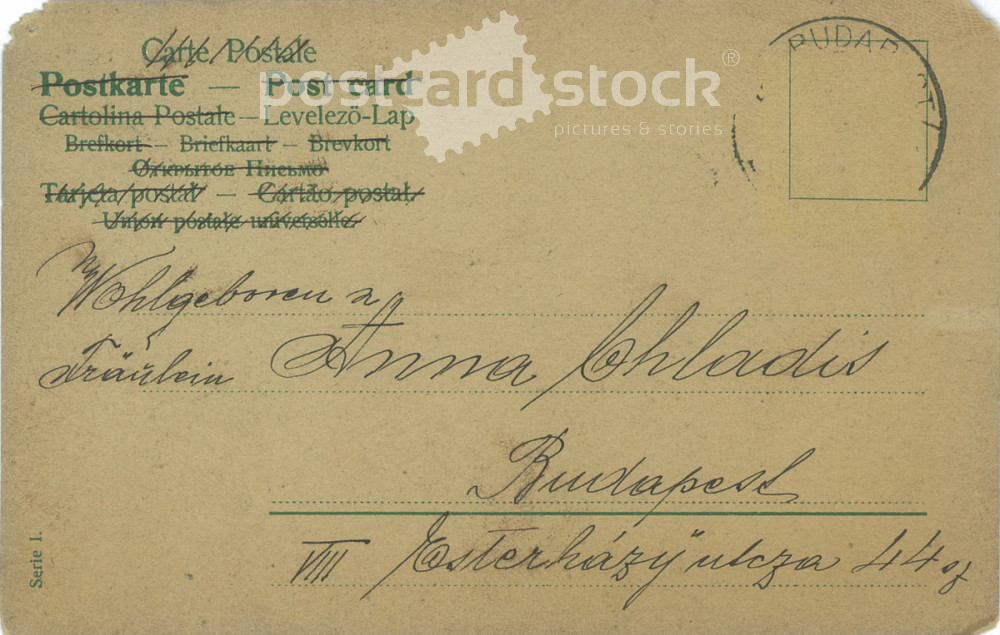 Carte Postale
Postkarte — Post card
Cartolina Postale — Levelező-Lap
Brefkort — Briefkaart — Brevkort
Открытое Письмо
Tarjeta postal — Cartão postal.
Union postale universelle.
postcard stock®
pictures & stories
BUDAP
Wohlgeboren
Fräulein Anna Chladis
Budapest
VIII Esterházy utcza 44 sz
Serie I.